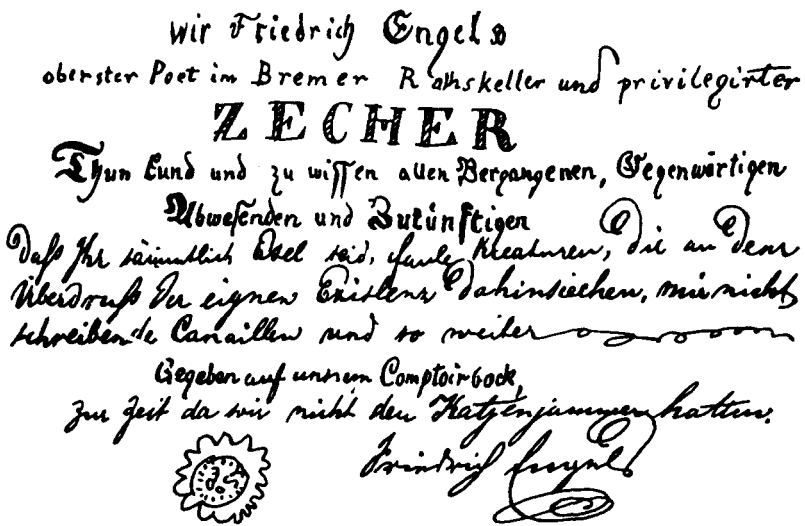 Wir Friedrich Engels
oberster Poet im Bremer Rathskeller und privilegirter
ZECHER
Thun kund und zu wissen allen Vergangenen, Gegenwärtigen
Abwesenden und Zukünftigen
Daß Ihr sämmtlich Esel seid, faule Kreaturen, die an dem
Überdruß der eignen Existenz dahinsiechen, mir nicht
schreibende Canaillen und so weiter
Gegeben auf unsrem Comptoirbock,
Zur Zeit da wir nicht den Katzenjammer hatten.
Friedrich Engels